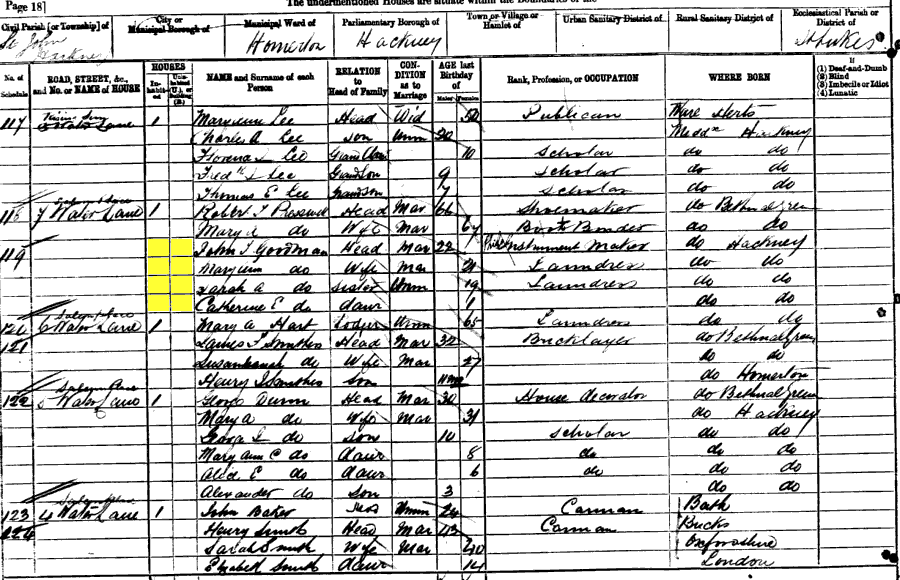 Page 18] The undermentioned Houses are situate within the Boundaries of the
Civil Parish [or Township] of
St John Hackney
City or
Municipal Borough of
Municipal Ward of
Homerton
Parliamentary Borough of
Hackney
Town or Village or
Hamlet of
Urban Sanitary District of
Rural Sanitary District of
Ecclesiastical Parish or
District of
St Lukes
No. of
Schedule
ROAD, STREET, &c.,
and No. or NAME of HOUSE
HOUSES
In-
habit-
ed
Unin-
habited
(U.), or
Building
(B.)
NAME and Surname of each
Person
RELATION
to
Head of Family
CON-
DITION
as to
Marriage
AGE last
Birthday
of
Males
Females
Rank, Profession, or OCCUPATION
WHERE BORN
If
(1) Deaf-and-Dumb
(2) Blind
(3) Imbecile or Idiot
(4) Lunatic
117 Water Lane 1 Mary ann Lee Head Wid 52 Publican Ware Herts
Charles A Lee son Unm 20 Middx Hackney
Lee 10 Scholar do do
Fredk Lee Grandson 9 Scholar do do
Thomas E Lee Grandson 7 Scholar do do
118 7 Water Lane 1 Robert Head Mar 66 Shoemaker do Bethnal Green
Mary do Wife Mar 67 Boot Binder do do
119 John T Goodman Head Mar 22 Instrument Maker do Hackney
Mary ann do Wife Mar 21 Laundress do do
Sarah A do sister Unm 19 Laundress do do
Catherine E do daur 1 do do
120 6 Water Lane 1 Mary A Hart Lodger Unm 65 Laundress do do
121 James T Smithes Head Mar 32 Bricklayer do Bethnal Green
Susanhannah do Wife Mar 27 do do
Henry Smithes son 11 mo do Homerton
122 5 Water Lane 1 George Head Mar 30 House decorator do Bethnal Green
Mary A do Wife Mar 31 do Hackney
George do son 10 scholar do do
Mary Ann C do daur 8 do do do
Alice E do daur 6 do do do
Alexander do son 3 do do
123 4 Water Lane 1 John Baker Unm 24 Carman Bath
124 Henry Smith Head Mar 43 Carman Bucks
Sarah Smith Wife Mar 40 Oxfordshire
Elizabeth Smith daur 14 London